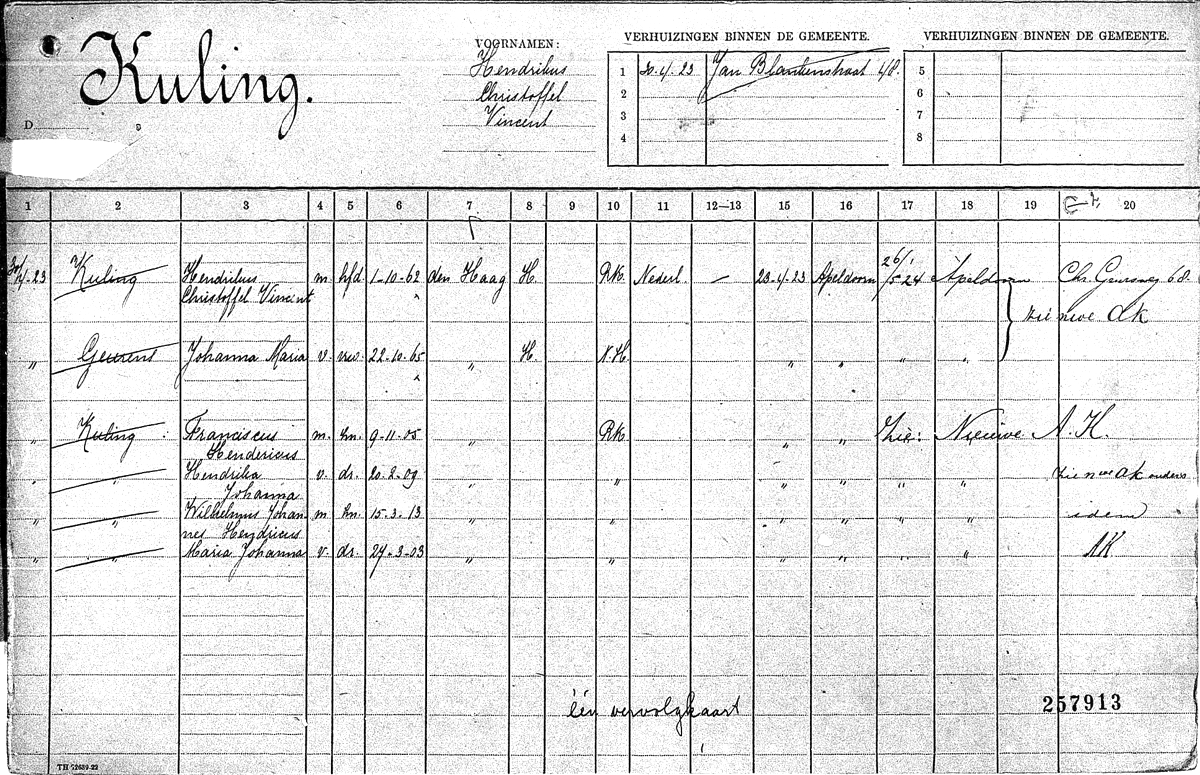 Kuling.
VOORNAMEN:
Hendrikus
Christoffel
Vincent
VERHUIZINGEN BINNEN DE GEMEENTE.
1 20-4-23 Jan Blankenstraat 48
2
3
4
VERHUIZINGEN BINNEN DE GEMEENTE.
5
6
7
8
D
1 2 3 4 5 6 7 8 9 10 11 12—13 15 16 17 18 19 20
4-23 Kuling Hendrikus m. hfd. 1-10-62 den Haag H. R.K. Nederl. — 23-4-23 Apeldoorn 26/5-24 Apeldoorn 68.
Christoffel Vincent
zie nwe AK
„ Geurent Johanna Maria v. vrw 22-10-65 „ H. N.H. „ „ „ „
„ Kuling : Franciscus m. zn. 9-11-05 „ R.K. „ „ zie: Nieuwe A.K.
Hendericus
„ „ Hendrika v. dr. 20-2-09 „ „ „ „ „ „ zie nwe AK ouders
Johanna
„ „ Wilhelmus Johan m zn. 15-3-13 „ „ „ „ „ „ idem
nes Hendricus
„ „ Maria Johanna v. dr. 29-3-03 „ „ „ „ „ „ AK
één vervolgkaart
257913
TH 72639-22